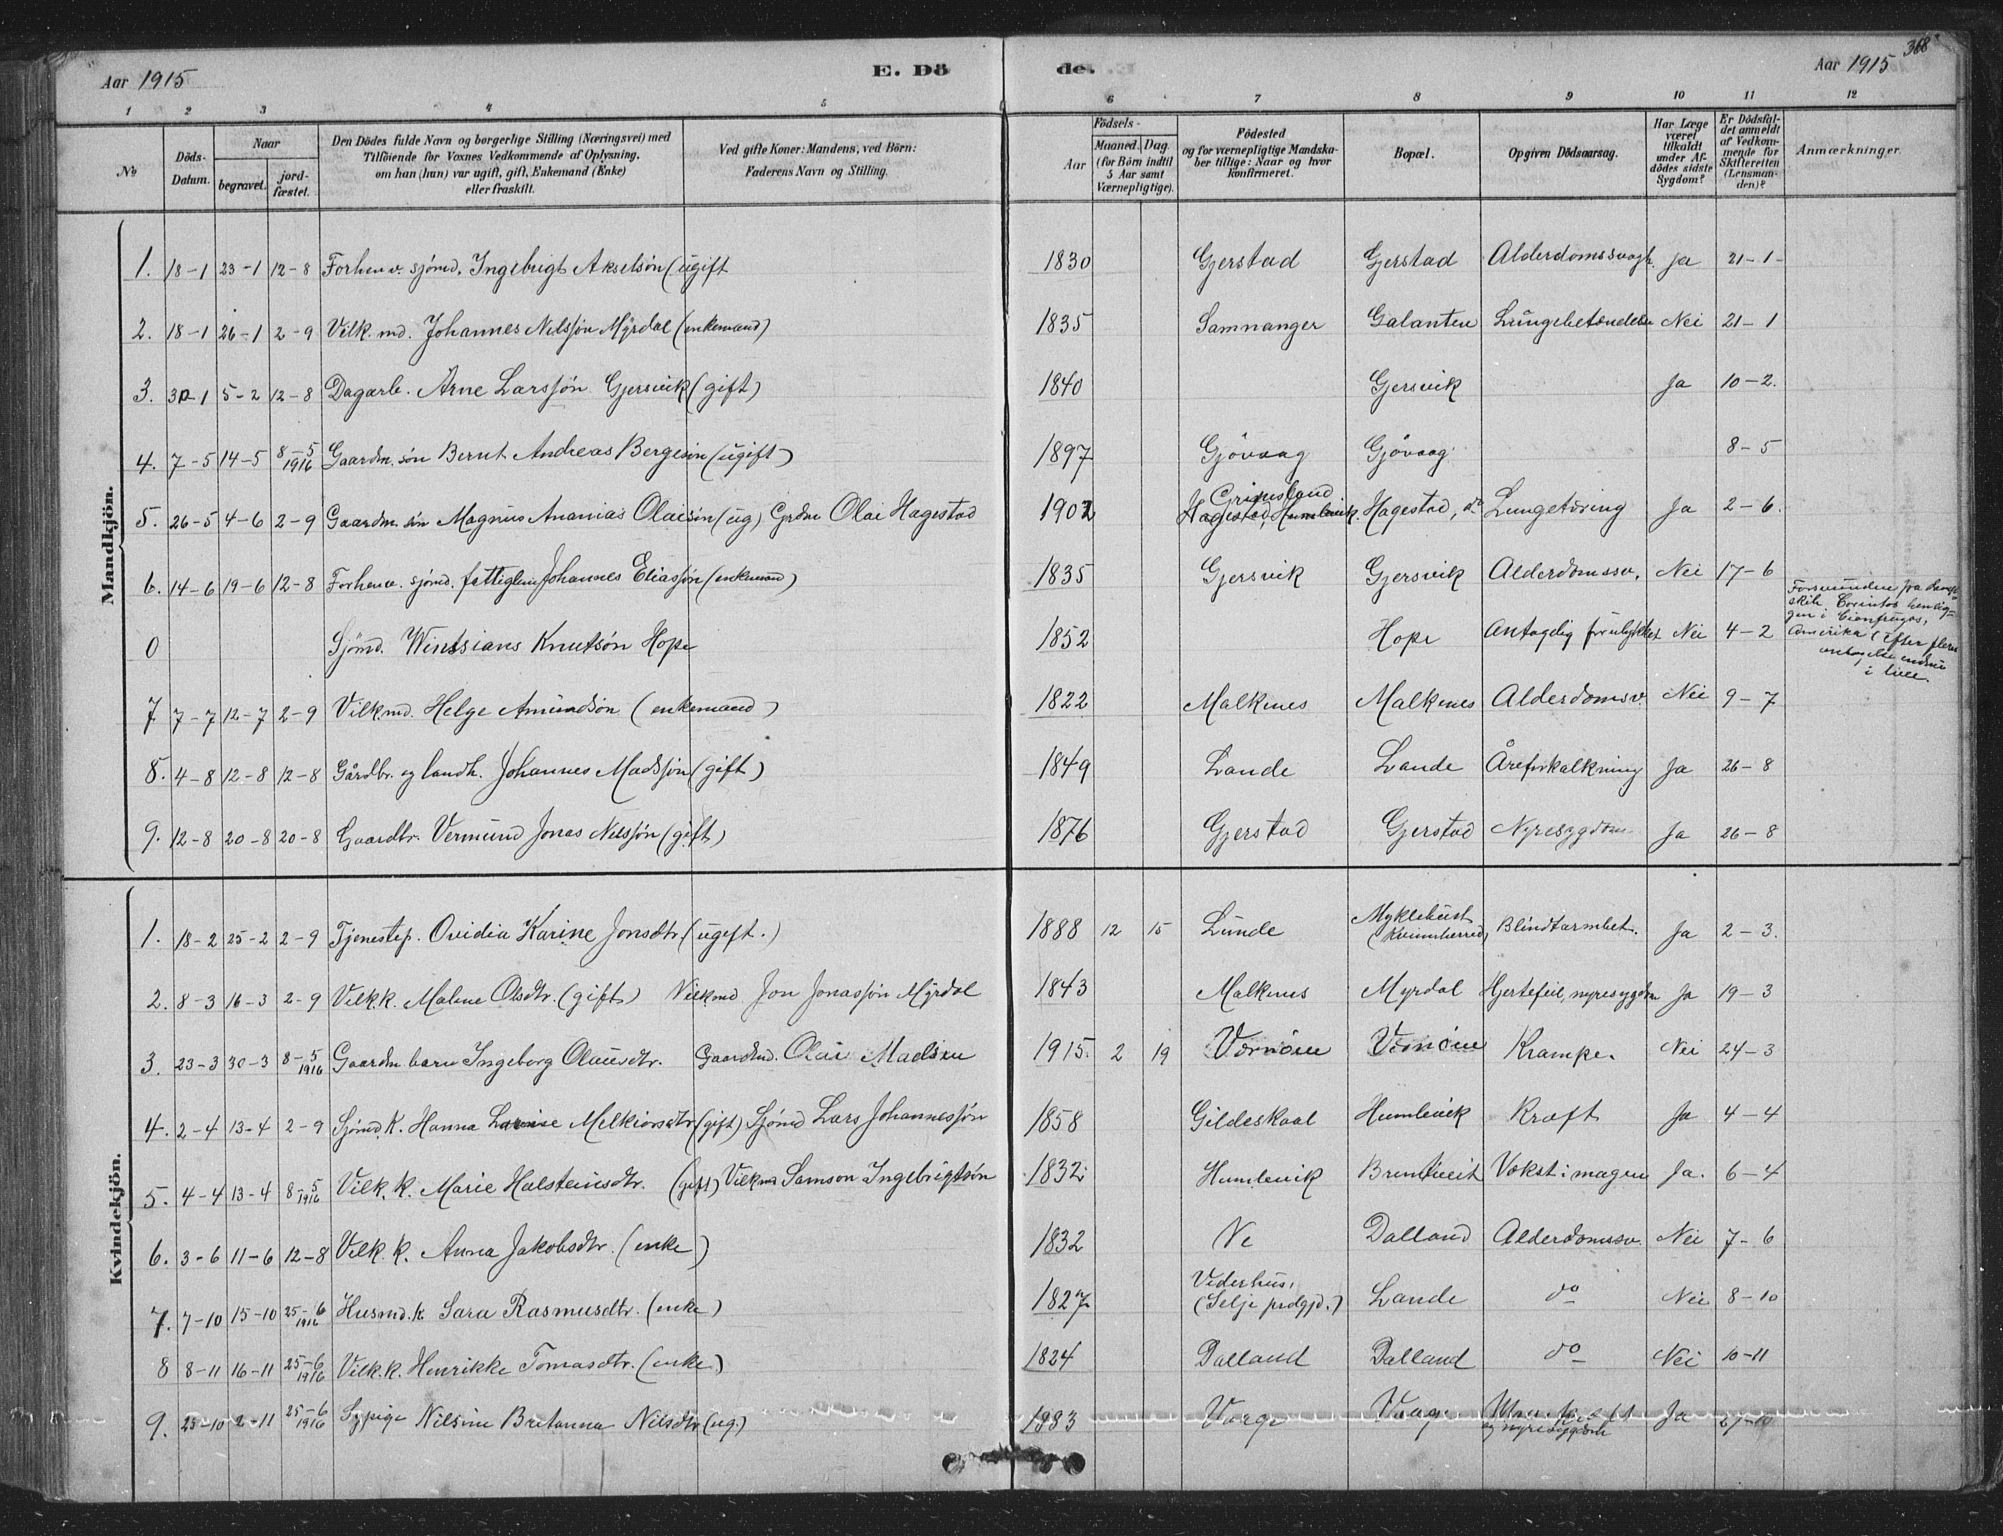 368
Aar 1915 E. Dö de. Aar 1915
1 2 3 4 5 6 7 8 9 10 11 12
No Döds-Datum. Naar begravet. jord-fæstet. Den Dödes fulde Navn og borgerlige Stilling (Næringsvei) med Tilföiende for Voxnes Vedkommende af Oplysning, om han (hun) var ugift, gift, Enkemand (Enke) eller fraskilt. Ved gifte Koner: Mandens, ved Börn: Faderens Navn og Stilling. Aar Födsels- Maaned. Dag. (for Börn indtil 5 Aar samt Værnepligtige). Födested og for værnepligtige Mandskaber tillige: Naar og hvor konfirmeret. Bopæl. Opgiven Dödsaarsag. Har Læge været tilkaldt under Afdödes sidste Sygdom? Er Dödsfaldet anmeldt af Vedkommende for Skifteretten (Lensmanden)? Anmærkninger.
Mandkjön.
1. 18-1 23-1 12-8 Forhenv. sjömd. Ingebrigt Akselsön (ugift 1830 Gjerstad Gjerstad Alderdomssvagh. Ja 21-1-
2. 18-1 26-1 2-9 Vilk. md. Johannes Nilssön Myrdal (enkemand) 1835 Samnanger Galanten Lungebetændelse Nei 21-1
3. 30-1 5-2 12-8 Dagarb. Arne Larssön Gjersvik (gift) 1840 Gjersvik Ja 10-2.
4. 7-5 14-5 8-5 1916 Gaardm. sön Bernt Andreas Bergesön (ugift) 1897 Gjövaag Gjövaag 8-5
5. 26-5 4-6 2-9 Gaardm. sön Magnus Ananias Olaisön (ug) Grdm Olai Hagestad 1902 Grimsland Hagestad, Humlevik. Hagestad, do Lungetæring Ja 2-6.
6. 14-6 19-6 12-8 Forhenv. sjömd. fattiglem Johannes Eliassön (enkemand) 1835 Gjersvik Gjersvik Alderdomssv. Nei 17-6
0 Sjömd. Wentsians Knutsön Hope 1852 Hope Antagelig forulykket Nei 4-2 Forsvunden fra damp-skib Corintos henlig-gen i Cienfuegos, Amerika (Efter flere antagelse endnu i live.
7 7-7 12-7 2-9 Vilkmd. Helge Amundsön (enkemand) 1822 Malkenes Malkenes Alderdomsv. Nei 9-7
8. 4-8 12-8 12-8 Gårdbr. og landh. Johannes Madssön (gift) 1849 Lande Lande Åreforkalkning Ja 26-8
9. 12-8 20-8 20-8 Gaardbr. Vermund Jonas Nilssön (gift) 1876 Gjerstad Gjerstad Nyresygdom Ja 26-8
Kvindekjön.
1. 18-2 25-2 2-9 Tjenestep. Ovidia Karine Jonsdtr. (ugift.) 1888 12 15 Lunde Myklebust (Kvinnherred) Blindtarmbet. Ja 2-3.
2. 8-3 16-3 2-9 Vilk.k. Malene Olsdtr. (gift) Vilkmd Jon Jonassön Myrdal 1843 Malkenes Myrdal Hjertefeil, nyresygdom Ja 19-3
3. 23-3 30-3 8-5 1916 Gaardm. barn Ingeborg Olausdtr. Gaardmd. Olai Madsen 1915. 2 19 Vernöen Vernöen Krampe. Nei 24-3
4. 2-4 13-4 2-9 Sjömd. k. Hanna Lovise Melkiorsdtr. (gift) Sjömd Lars Johannessön 1858 Gildeskaal Humlevik Kræft Ja 4-4
5. 4-4 13-4 8-5 1916 Vilk. k. Marie Halsteinsdtr. (gift) Vilkmd Samson Ingebrigtsön 1832 Humlevik Brentveit Vækst i magen Ja. 6-4
6. 3-6 11-6 12-8 Vilk. k. Anna Jakobsdtr. (enke) 1832 Ve Dalland Alderdomssv. Nei 7-6
7. 7-10 15-10 25-6 1916 Husmd. k Sara Rasmusdtr. (enke) 1827 Vederhus, (Selje prstgjd.) Lande do Nei 8-10
8 8-11 16-11 25-6 1916 Vilk.k. Henrikke Tomasdtr. (enke) 1824 Dalland Dalland do Nei 10-11
9. 25-10 2-11 25-6 1916 Sypige Nilsine Britanna Nilsdtr (ug.) 1883 Varge og nyresygdom Ja